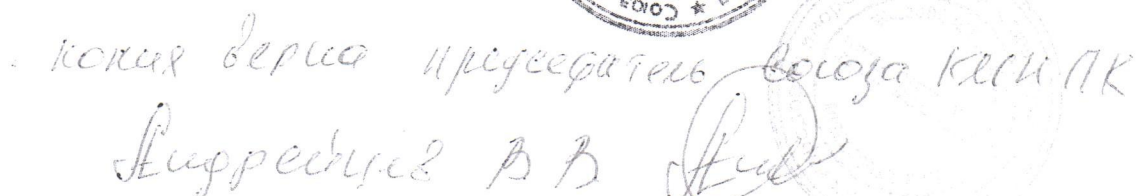 Союз
копия верна председатель союза КМН ПК
Андрейцив В В